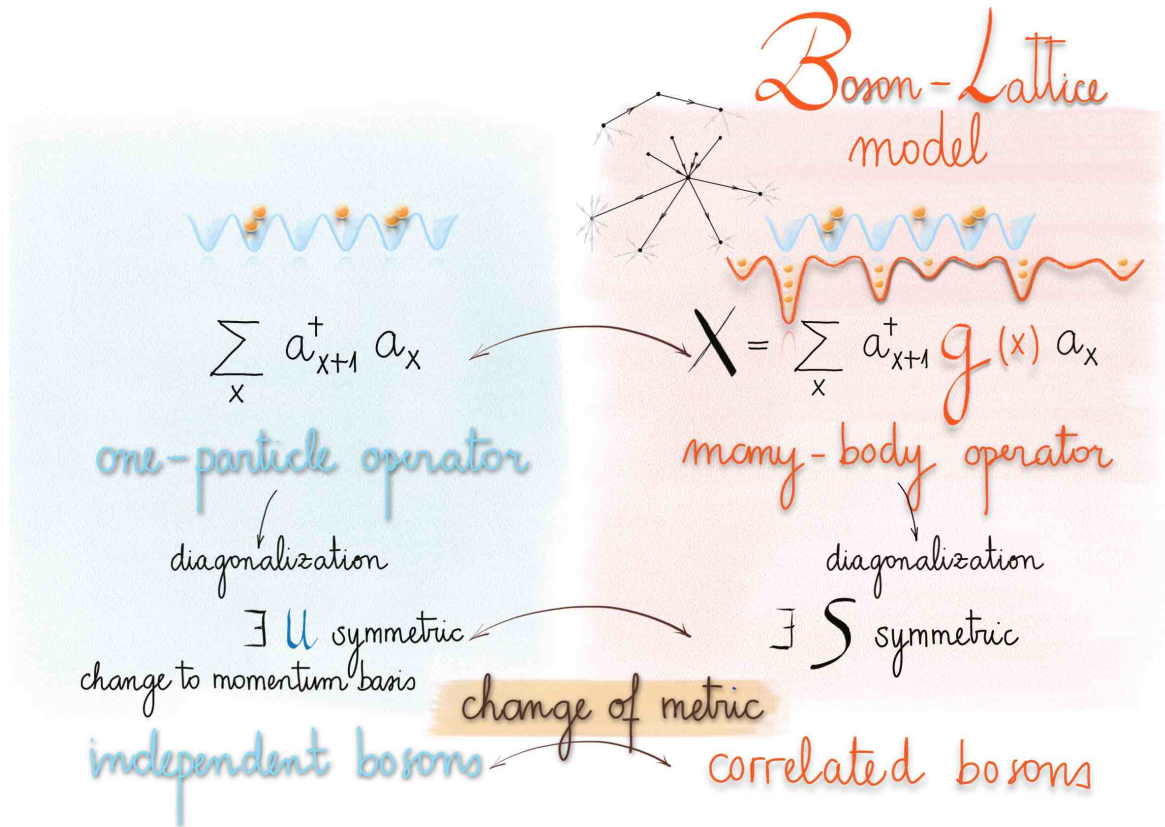 Boson-Lattice
model
∑ₓ a†ₓ₊₁ aₓ
X = ∑ₓ a†ₓ₊₁ g(x) aₓ
one-particle operator
many-body operator
diagonalization
diagonalization
∃ U symmetric
∃ S symmetric
change to momentum basis
change of metric
independent bosons
correlated bosons